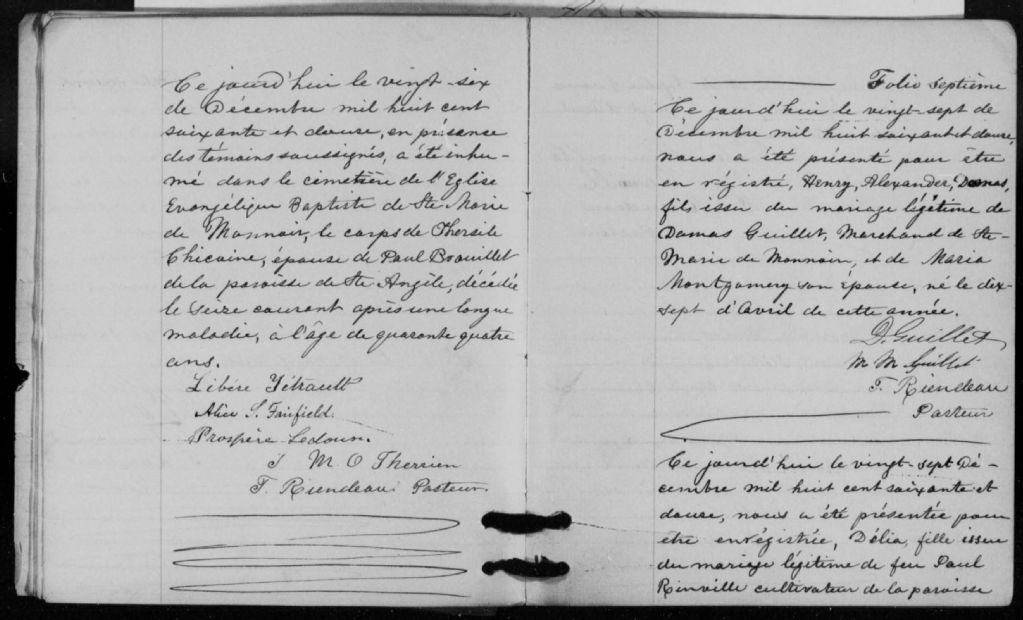 Ce jourd'hui le vingt-six
de Décembre mil huit cent
soixante et douse, en présense
des témoins soussignés, a été inhu-
mé dans le cimetière de l'Eglise
Evangélique Baptiste de Ste-Marie
de Monnoir, le corps de Thersile
Chicoine, épouse de Paul Brouillet
de la paroisse de Ste Angèle, décédée
le seize courant après une longue
maladie, à l'âge de quarante quatre
ans.
Libére Tétrault
Alice S. Fairfield.
Prospère Ledoux.
J M O Therrien
T. Riendeau Pasteur.
Folio septième
Ce jourd'hui le vingt-sept de
Décembre mil huit soixant et douse,
nous a été présenté pour être
en régistré, Henry, Alexander, Damas,
fils issu du mariage légétime de
Damas Guillet, Marchand de Ste-
Marie de Monnoir, et de Maria
Montgomery son épouse, né le dix-
sept d'Avril de cette année.
D. Guillet
M M Guillet
T. Riendeau
Pasteur
Ce jourd'hui le vingt-sept Dé-
cembre mil huit cent soixante et
douse, nous a été présentée pour
etre enrégistrée, Délia, fille issue
du mariage légitime de feu Paul
Rinville cultivateur de la paroisse